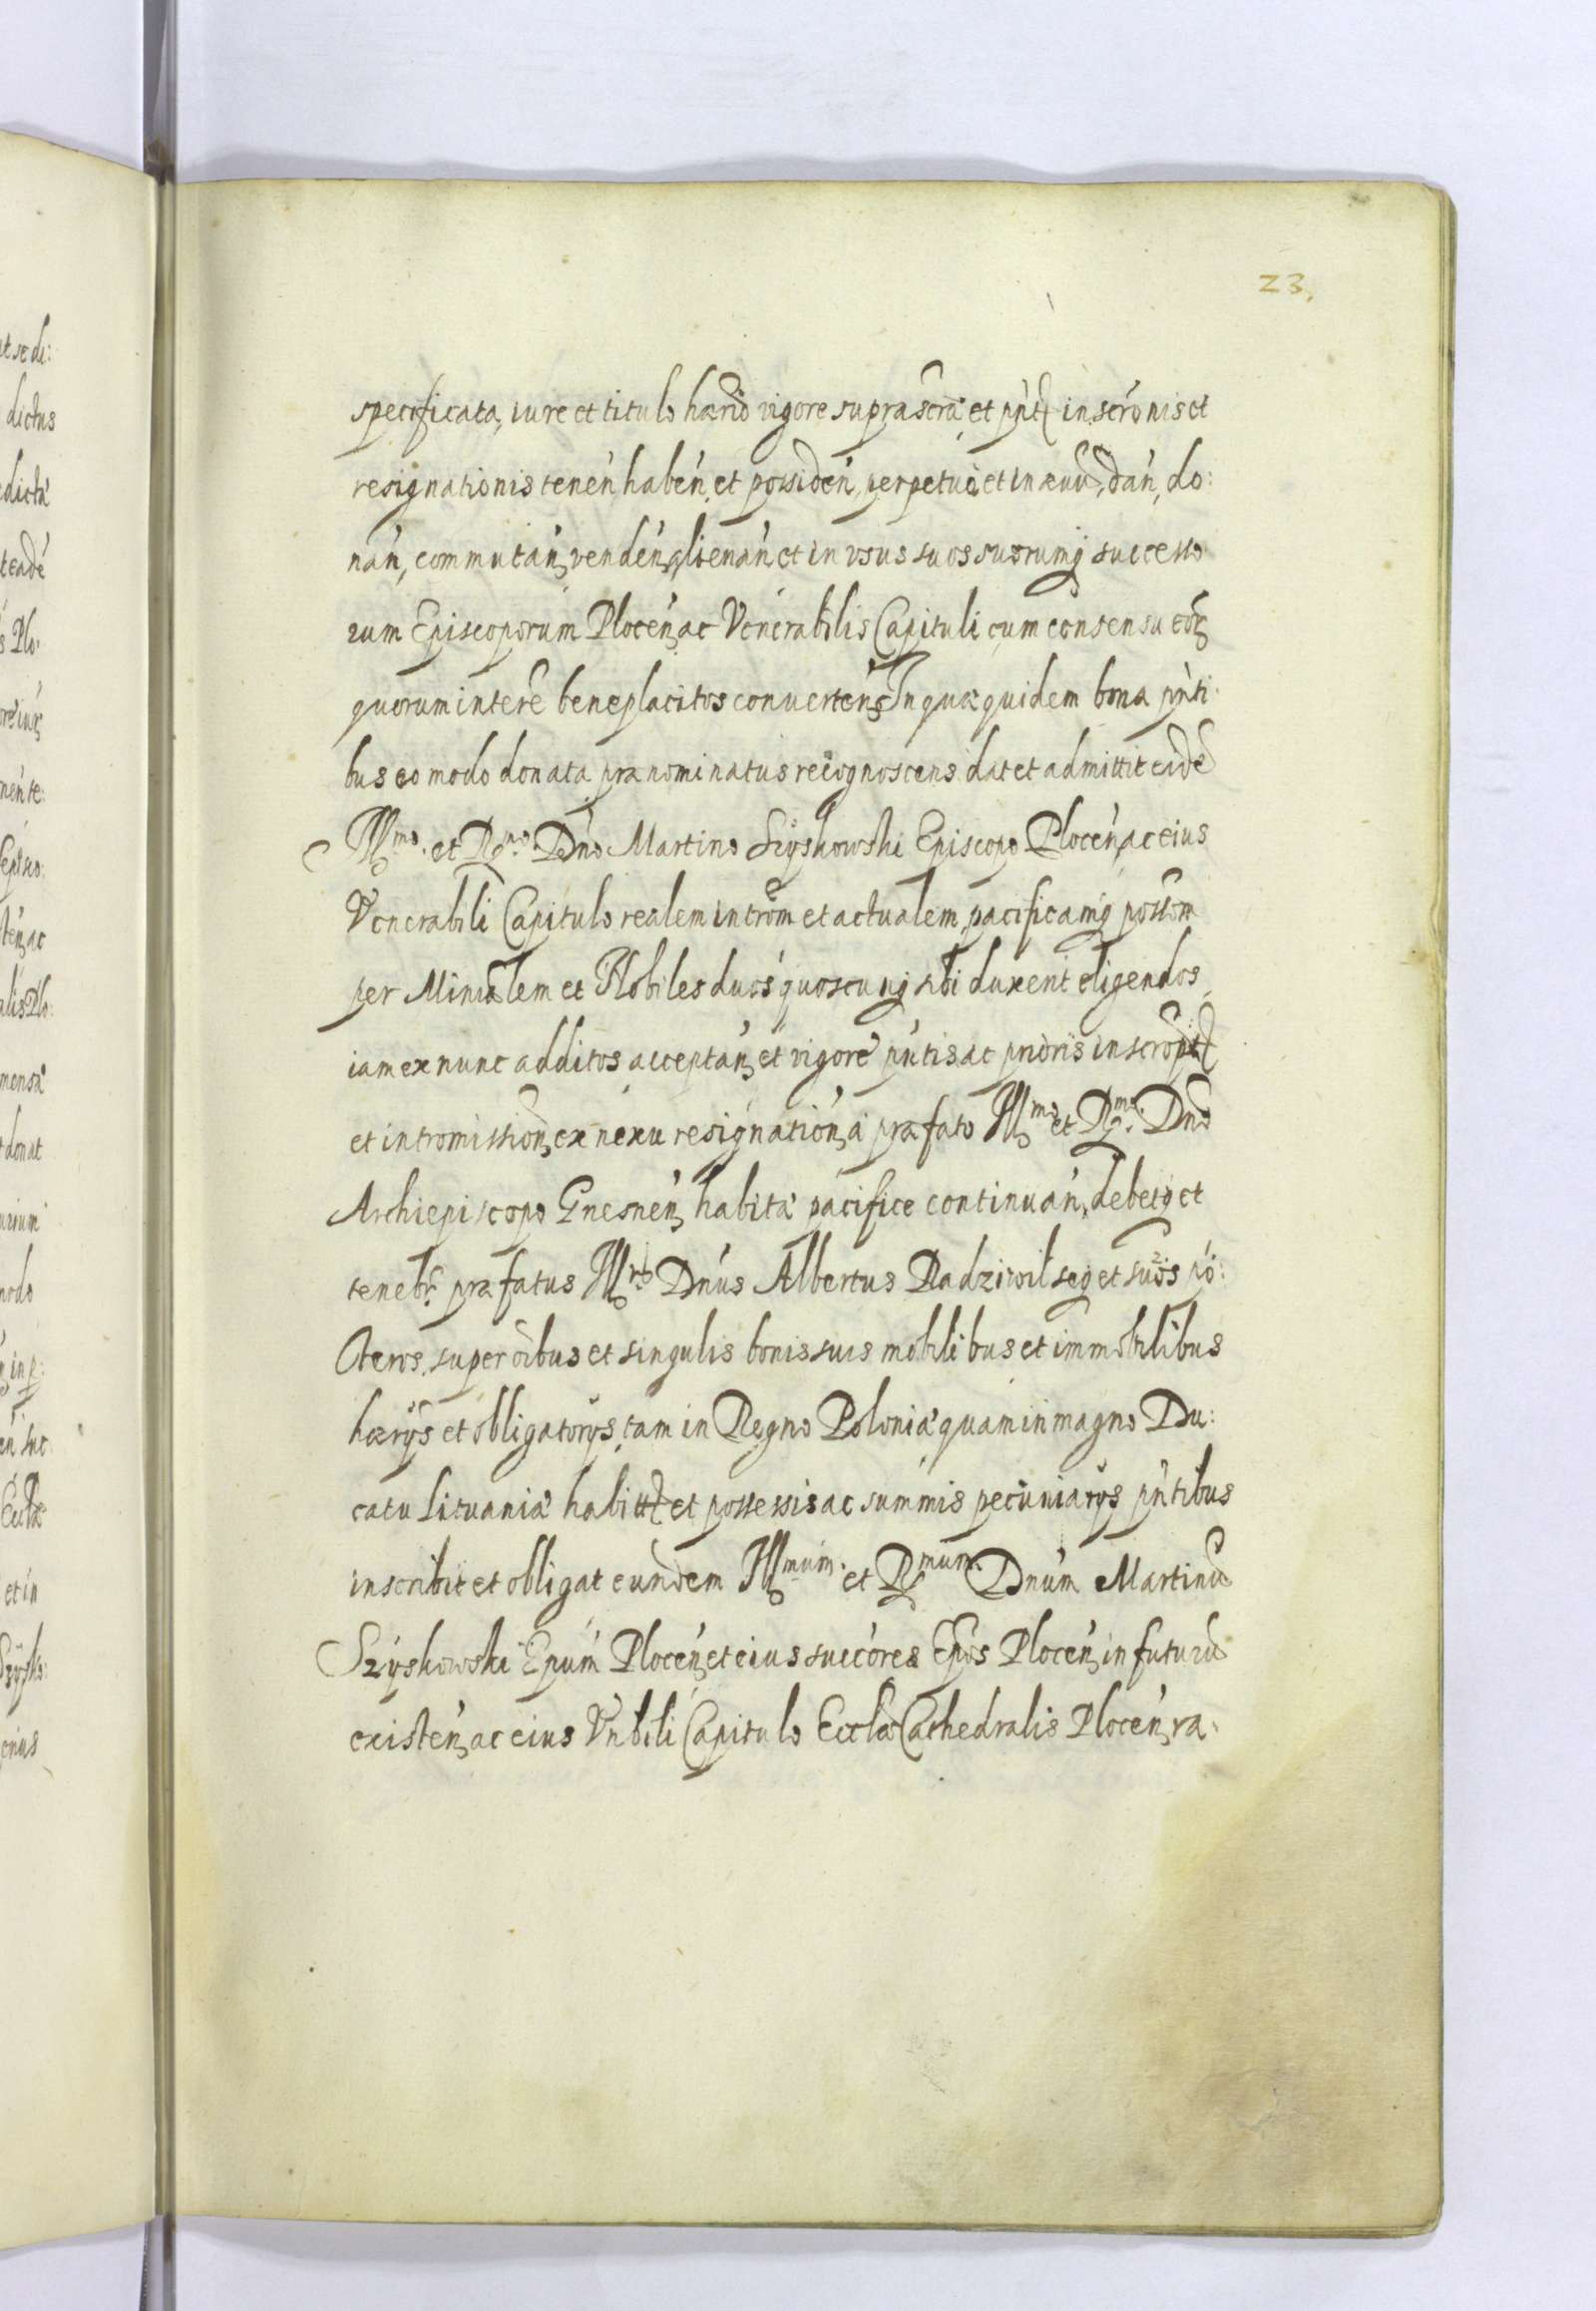 23.
specificata, iure et titulo hærio vigore suprascrã, et pñt inscrõnis et
resignationis tenen̄, haben̄, et possiden̄, perpetuo et in ævũ, dan̄, do:
nan̄, commutan̄, venden̄, alienan̄, et in vsus suos suorumq successo
rum Episcoporum Plocen̄, ac Venerabilis Capituli cum consensu eõr
quorum interẽ beneplacitos conuerten̄, In quæ quidem bona pñti
bus eo modo donata prænominatus recognoscens dat et admittit eidẽ
Illmo. et Rmo. Dño Martino Szyskowski Episcopo Plocen̄, ac eius
Venerabili Capitulo realem intrõm et actualem, pacificamq possõm
per Minĩalem et Nobiles duos quoscunq sibi duxerit eligendos
iam ex nunc additos acceptan̄, et vigore pñtis ac prioris inscrõpt
et intromission̄, ex nexu resignation̄, a præfato Illmo et Rmo. Dño
Archiepiscopo Gnesnen̄, habitã pacifice continuan̄, debetq et
tenebr præfatus Illris Dñus Albertus Radziwil seq et suõs pó:
steros, super oĩbus et singulis bonis suis mobilibus et immobilibus
hærijs et obligatorijs, tam in Regno Poloniæ quam in magno Du:
catu Lituaniæ habit et possessis ac summis pecuniarijs pñtibus
inscribit et obligat eundem Illmum. et Rmum. Dñum Martinũ
Szyskowski Epũm Plocen̄, et eius succõres Epõs Plocen̄, in futurũ
existen̄, ac eius Vñbili Capitulo Ecclæ Cathedralis Plocen̄, ra:
et se de:
dictus
s Plo:
men te:
mensæ
donat
modo
et in